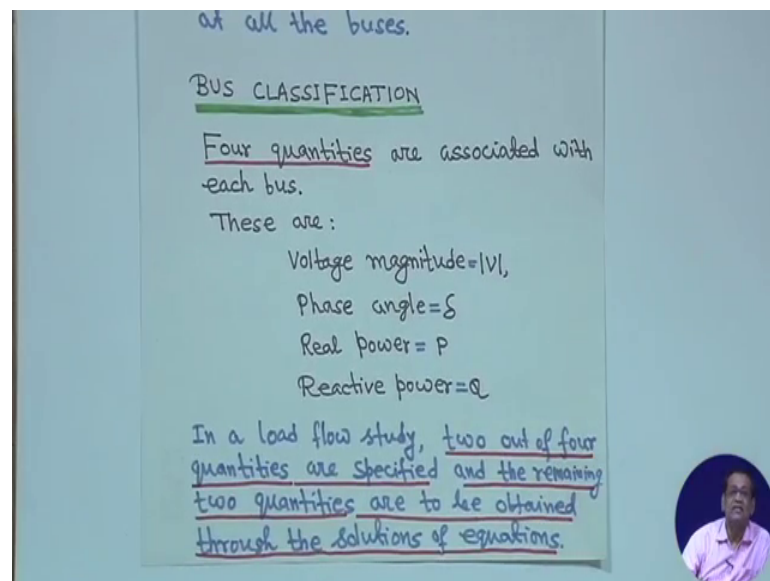 at all the buses.
BUS CLASSIFICATION
Four quantities are associated with
each bus.
These are:
Voltage magnitude=|V|,
Phase angle=δ
Real power = P
Reactive power=Q
In a load flow study, two out of four
quantities are specified and the remaining
two quantities are to be obtained
through the solutions of equations.